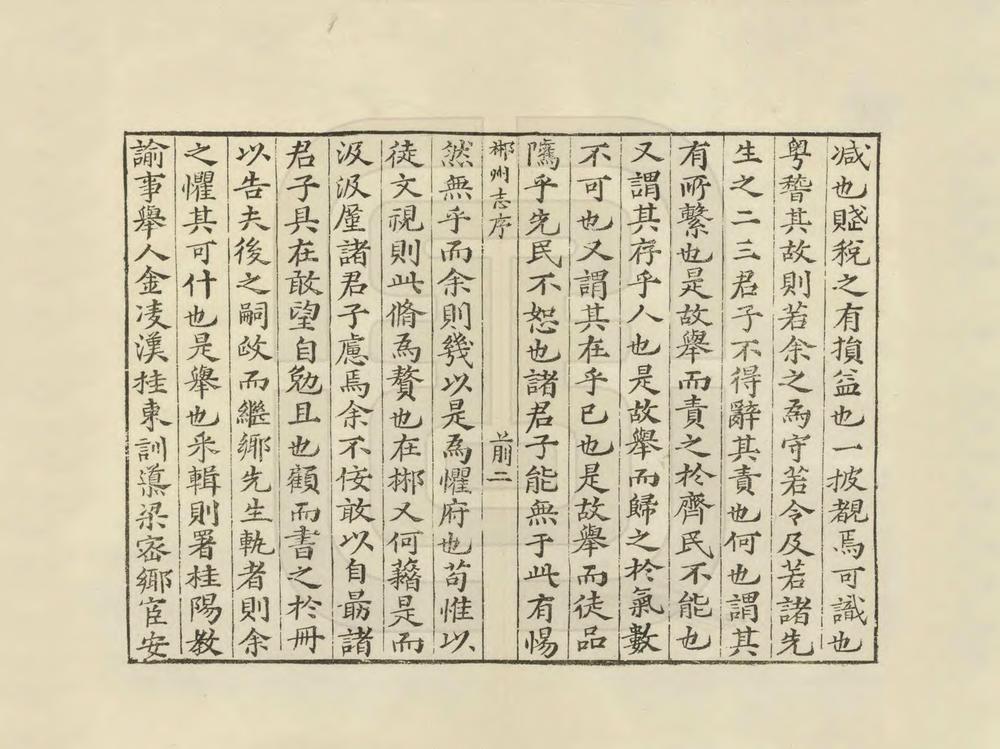 减也賦稅之有損益也一披覩焉可識也
粤瞀其故則若余之爲守若令及若諸先
生之二三君子不得辭其責也何也謂其
有所繫也是故舉而責之於齊民不能也
又謂其存乎人也是故舉而歸之於氣數
不可也又謂其在乎已也是故舉而徒品
隲乎先民不恕也諸君子能無于此有惕
郴州志序
前二
然無乎而余則幾以是爲懼府也苟惟以
徒文視則此脩爲贅也在郴又何籍是而
汲汲厪諸君子慮焉余不佞敢以自勗諸
君子具在敢望自勉且也顧而書之於冊
以告夫後之嗣政而繼鄉先生軌者則余
之懼其可什也是舉也釆輯則署桂陽教
諭事舉人金凌漢桂東訓導梁密鄉宦安